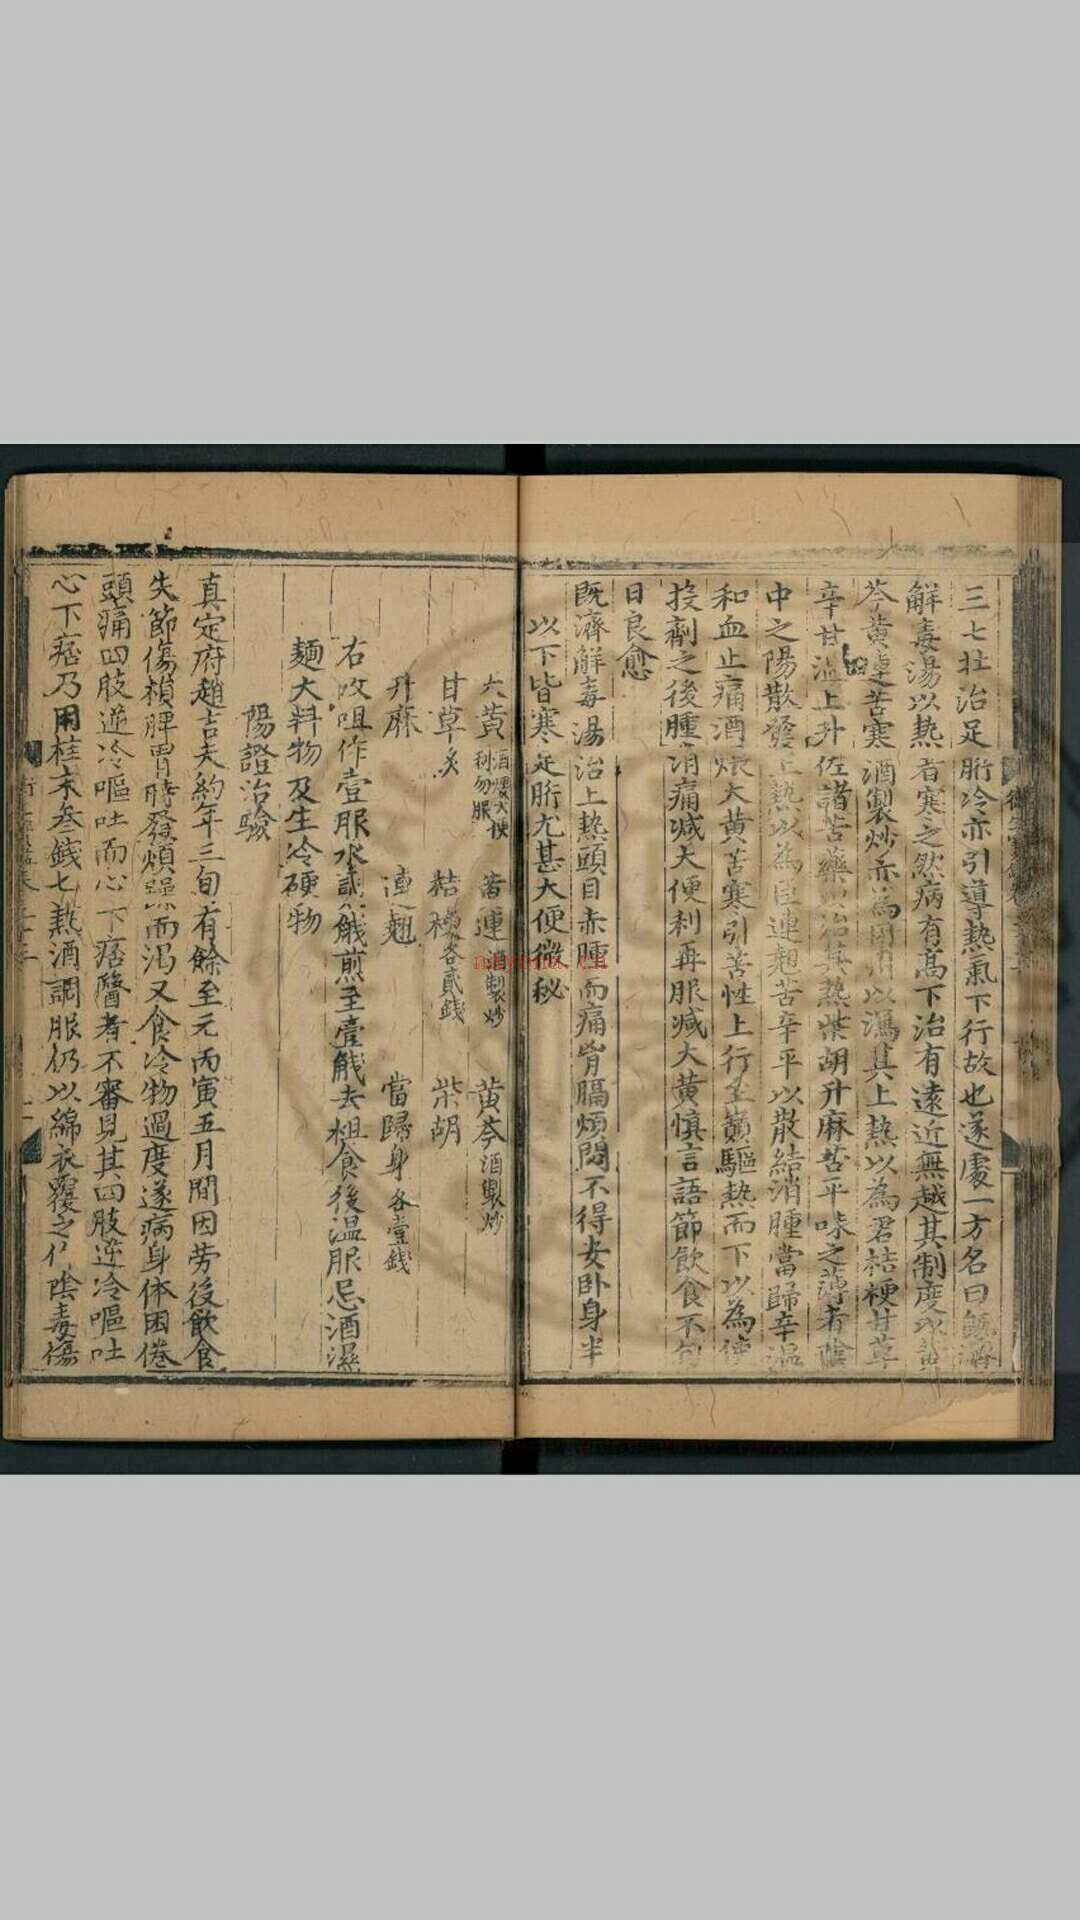 三七壮治足胻冷亦引導熱氣下行故也遂處一方名曰既濟
解毒湯以熱者寒之然病有髙下治有遠近無越其制度以
芩黄連苦寒酒製炒亦為因用以瀉其上熱以為君桔梗甘草
辛甘溫上升佐諸苦藥以治其熱柴胡升麻苦平味之薄者陰
中之陽散發上熱以為臣連翹苦辛平以散結消腫當歸辛温
和血止痛酒煨大黄苦寒引苦性上行至巔驅熱而下以為使
投劑之後腫消痛减大便利再服减大黄慎言語節飲食不旬
日良愈
既濟解毒湯治上熱頭目赤腫而痛胷膈煩悶不得安卧身半
以下皆寒足胻尤甚大便微秘
大黄酒煨大便利勿服 黄連酒製炒 黄芩酒製炒
甘草炙 桔梗各貳錢 柴胡
升麻 連翹 當歸身各壹錢
右㕮咀作壹服水貳觥煎至壹觥去柤食後溫服忌酒濕
麺大料物及生冷硬物
陽證治驗
真定府趙吉夫約年三旬有餘至元丙寅五月間因劳後飲食
失節傷損脾胃時發煩躁而渴又食冷物過度遂病身体困倦
頭痛四肢逆冷嘔吐而心下痞醫者不審見其四肢逆冷嘔吐
心下痞乃用桂末叁錢匕熱酒調服仍以綿衣覆之作陰毒傷